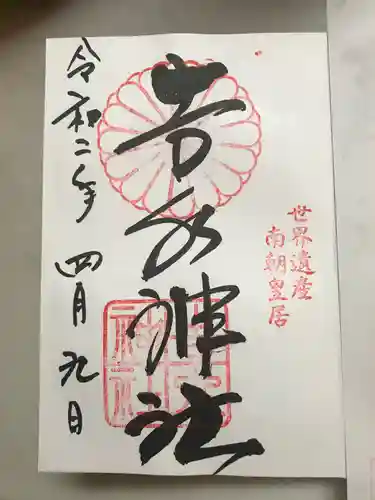 世界遺産
南朝皇居
吉水神社
令和二年四月九日